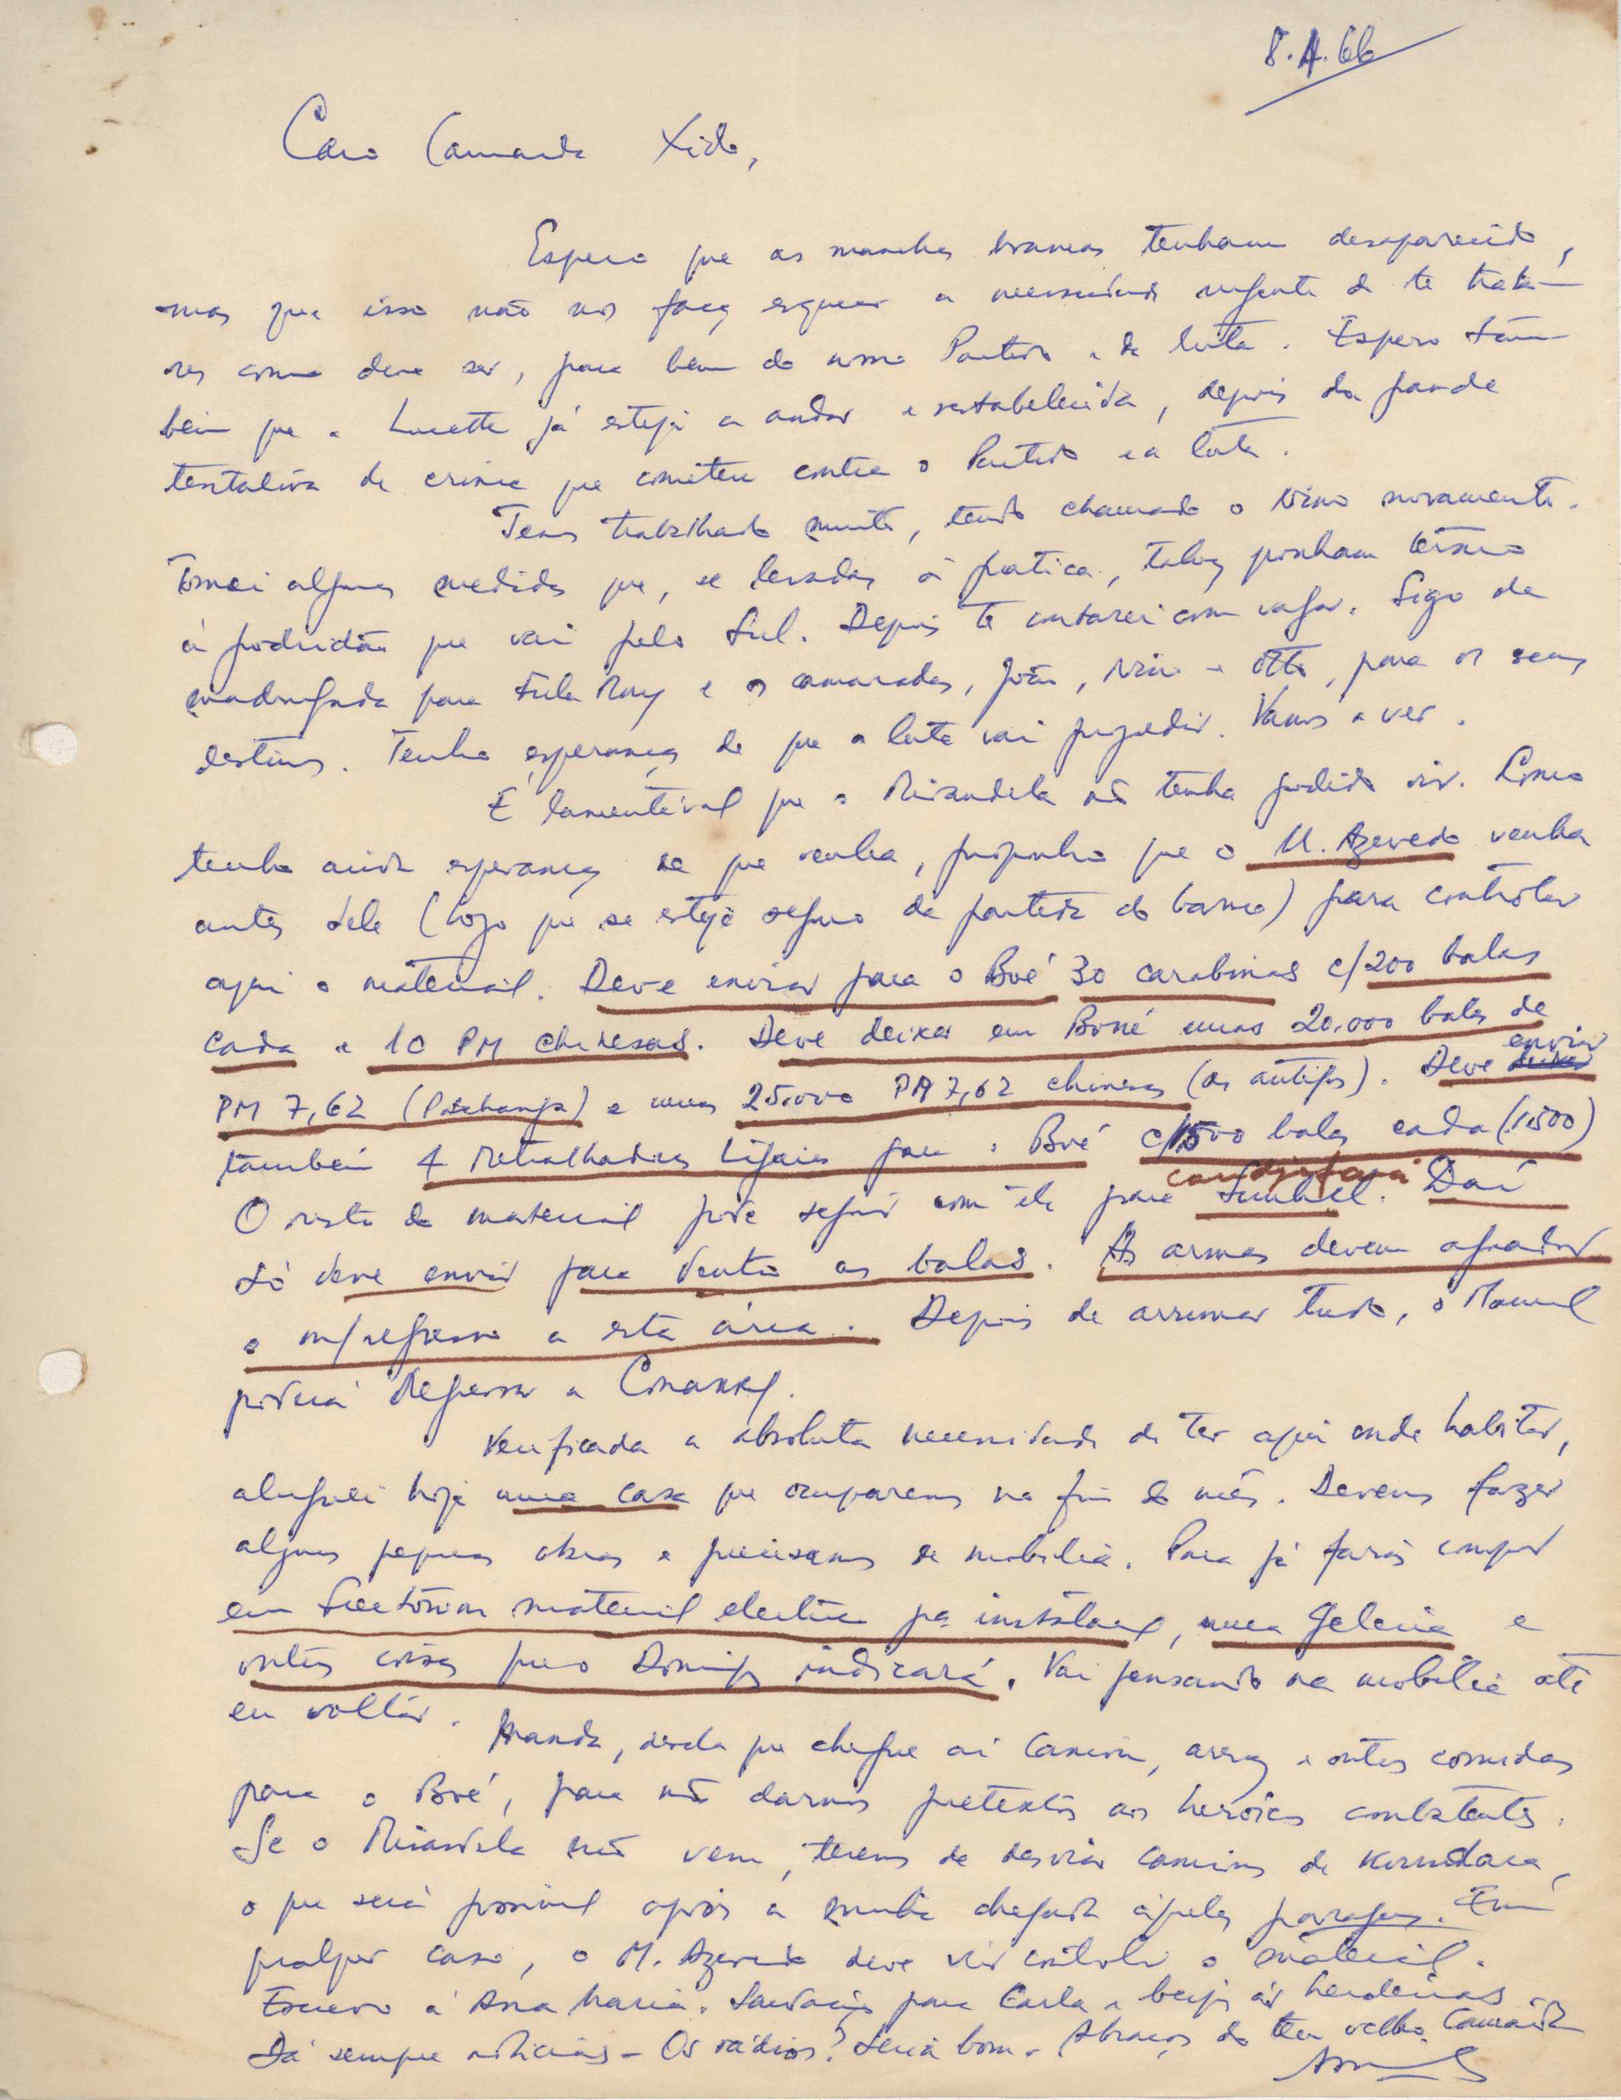 8.4.66
Caro Camarada Xido,
Espero que as manchas brancas tenham desaparecido,
mas que isso não nos faça esquecer a necessidade urgente de te trata-
res como deve ser, para bem do nosso Partido e da luta. Espero tam-
bém que a Lucette já esteja a andar e restabelecida, depois da grande
tentativa de crime que cometeu contra o Partido e a luta.
Temos trabalhado muito, tendo chamado o Nino novamente.
Tomei algumas medidas que, se levadas à prática, talvez ponham termo
à podridão que vai pelo Sul. Depois te contarei com vagar. Sigo de
madrugada para e os camaradas, João, Nino e Otto, para os seus
destinos. Tenho esperança de que a luta vai progredir. Vamos a ver.
É lamentável que o Mirandela não tenha podido vir. Como
tenho ainda esperança de que venha, proponho que o M. Azevedo venha
antes dele (logo que se esteja seguro da partida do barco) para controlar
aqui o material. Deve enviar para o Boé 30 carabinas c/200 balas
cada e 10 PM chinesas. Deve deixar em Boké umas 20.000 balas de
PM 7,62 (Patchanga) e umas 25.000 PM 7,62 chinesas (as antigas). Deve enviar
também 4 Metralhadoras Ligeiras para o Boé c/1500 balas cada (1500)
O resto do material pode seguir com ele para
Daí
só deve enviar para dentro as balas. As armas devem aguardar
o m/regresso a esta área. Depois de arrumar tudo, o Manuel
poderá regressar a Conakry.
Verificada a absoluta necessidade de ter aqui onde habitar,
aluguei hoje uma casa que ocuparemos no fim do mês. Devemos fazer
algumas pequenas obras e precisamos de mobília. Para já farás comprar
em material eléctrico pª instalação, uma geleira e
outras coisas que o Domingos indicará. Vai pensando na mobília até
eu voltar.
Manda, desde que chegue aí camion, arroz e outras comidas
para o Boé, para não darmos pretextos aos heróicos combatentes.
Se o Mirandela não vem, teremos de desviar camions de Koundara,
o que será possível após a minha chegada àquelas paragens. Em
qualquer caso, o M. Azevedo deve vir controlar o material.
Escrevo à Ana Maria. Saudações para Carla e beijos às herdeiras.
Dá sempre notícias - Os rádios? Seria bom. Abraços do teu velho Camarada